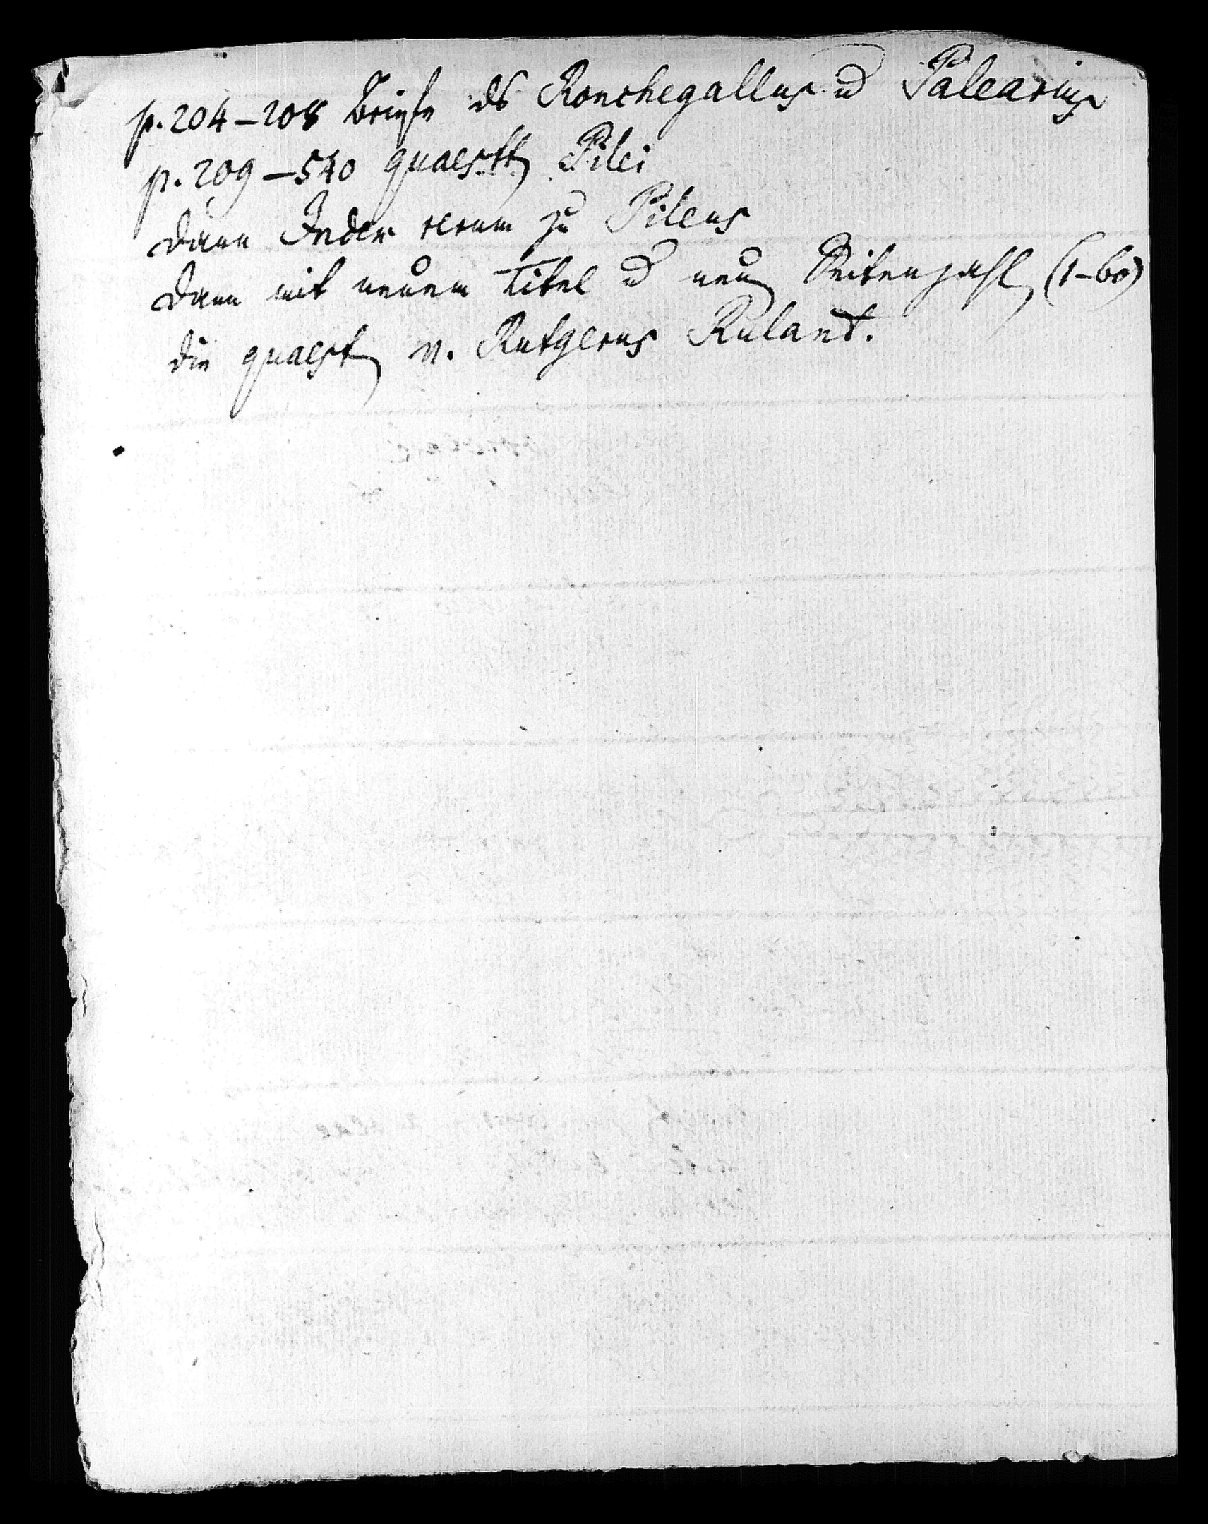 p. 204–208 Briefe ds Ronchegallus u Palearius
p. 209–540 quaestt Pilei
dann Index rerum zu Pileus
dann mit neuem Titel u neu Seitenzahl (1–60)
die quaest v. Rutgerus Rulant.